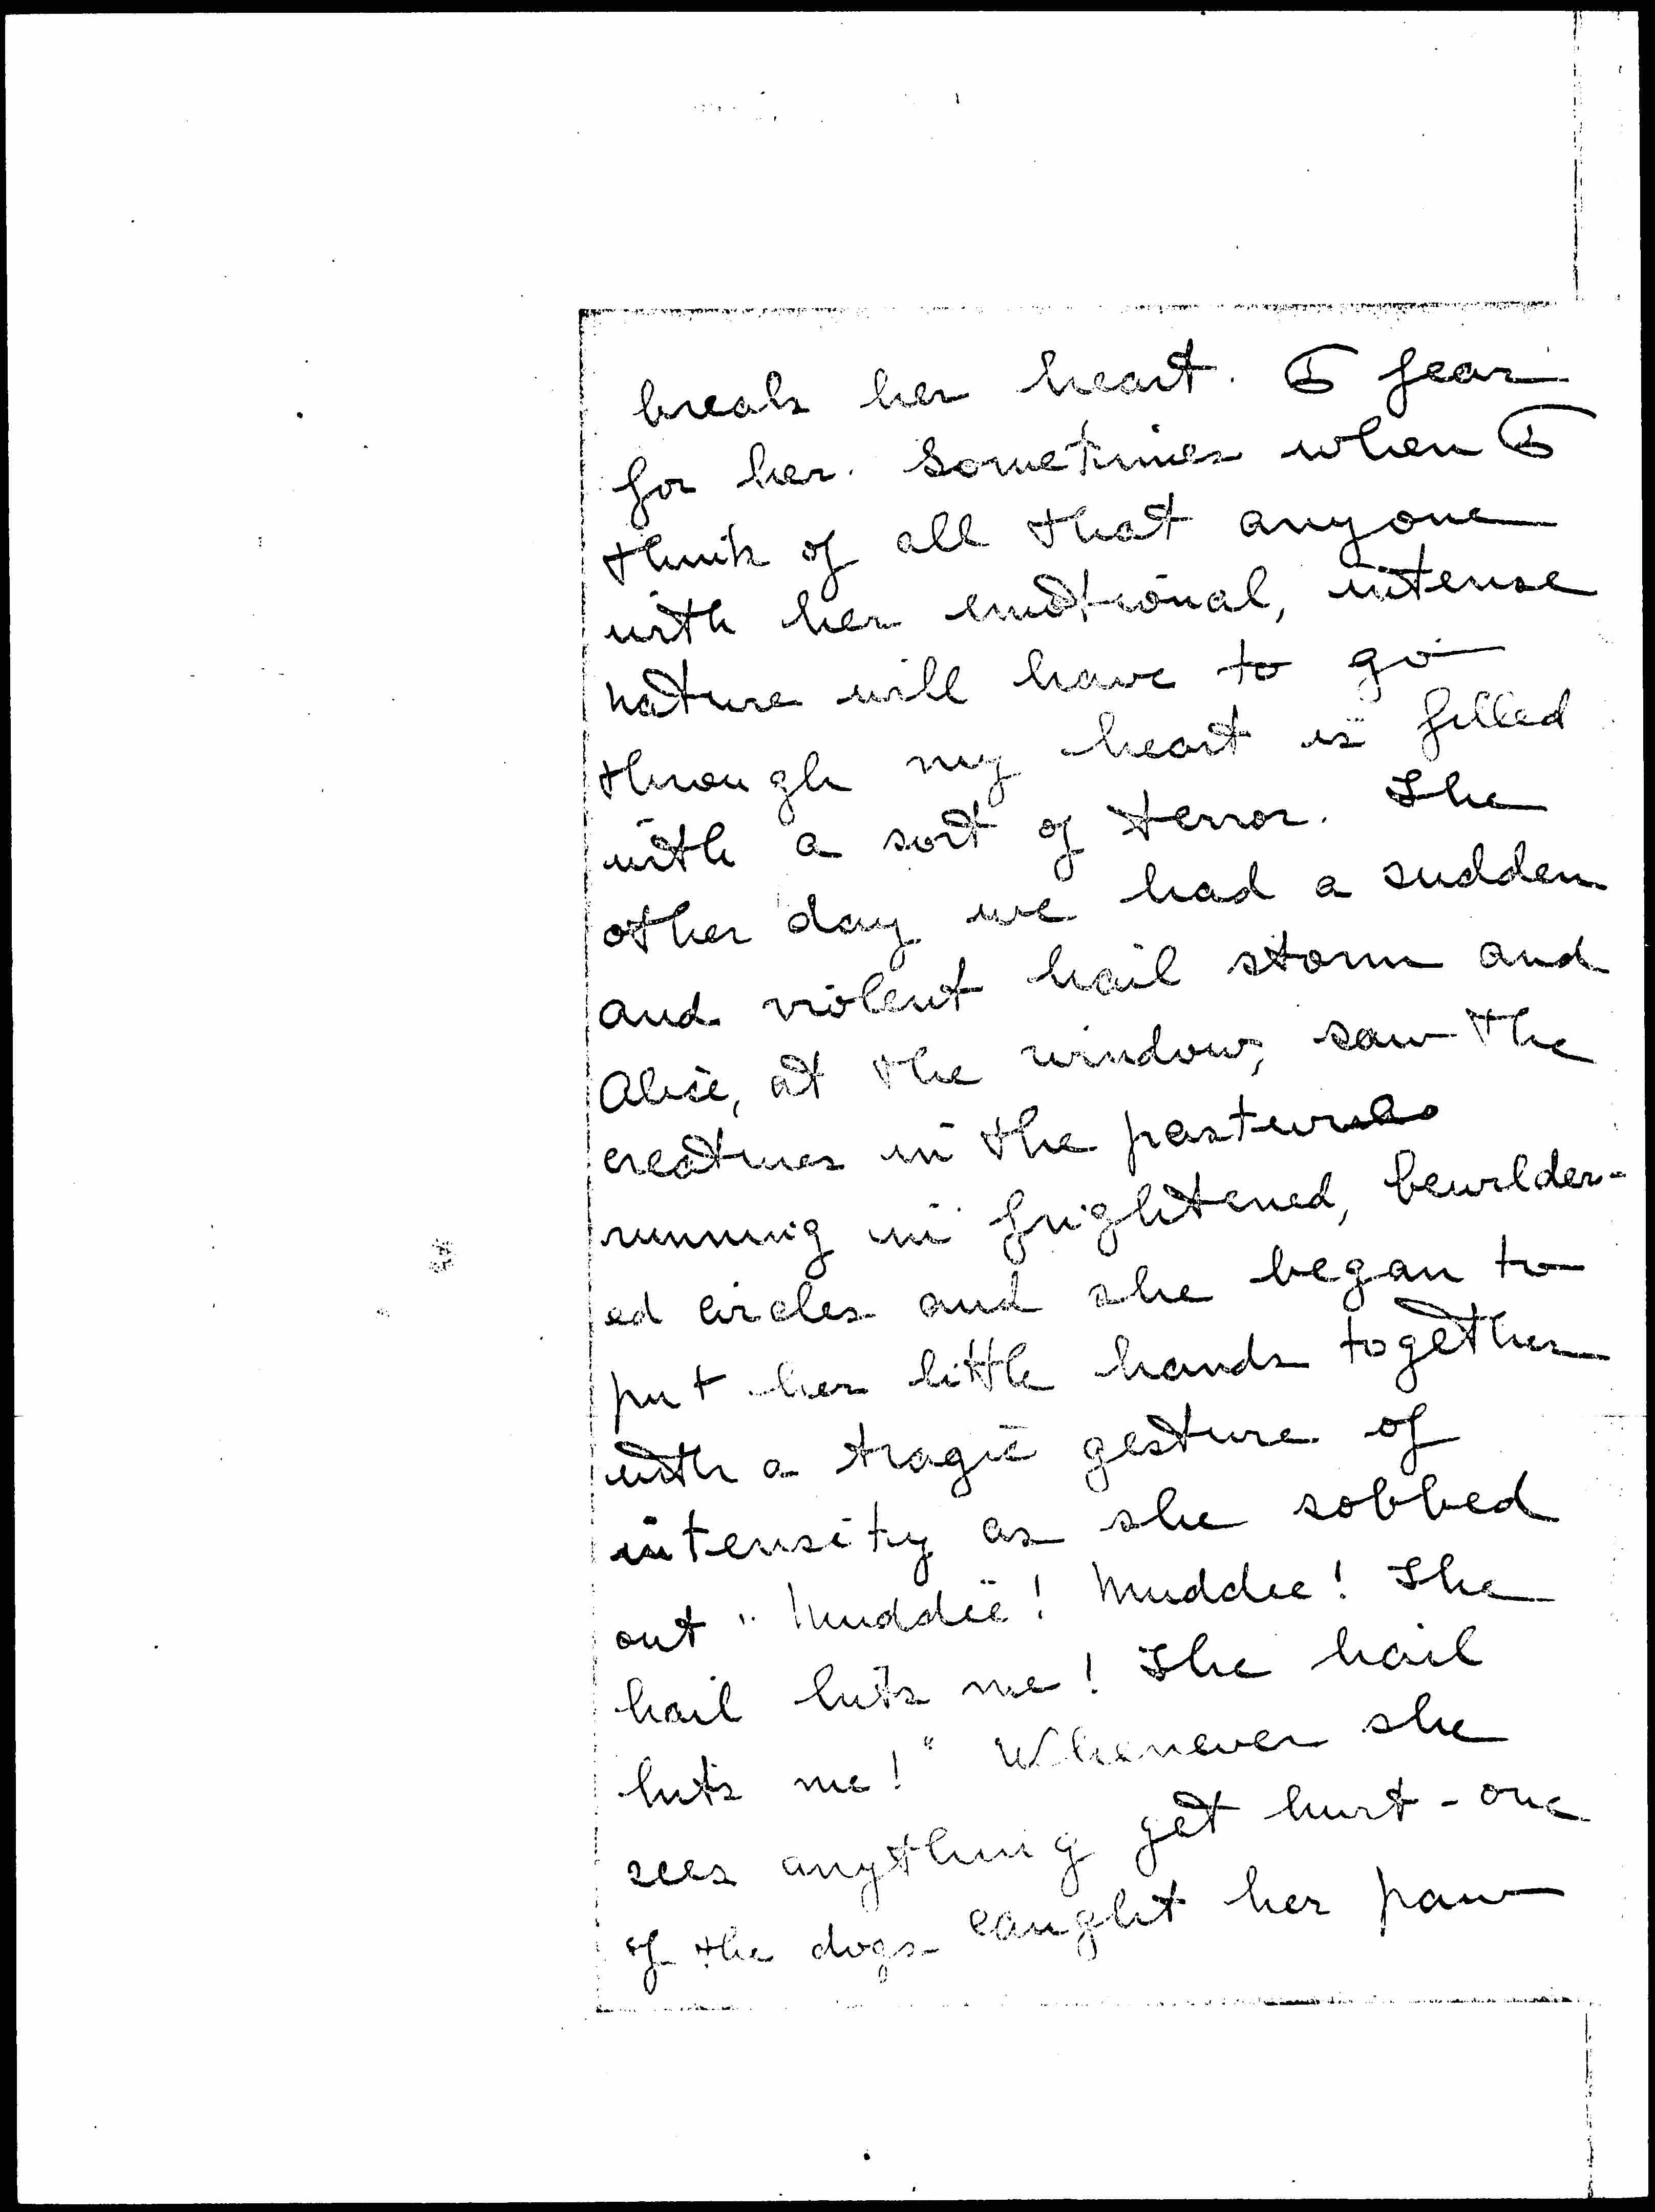 break her heart. I fear
for her. Sometimes when I
think of all that anyone
with her emotional, intense
nature will have to go
through my heart is filled
with a sort of terror. The
other day we had a sudden
and violent hail storm and
Alice, at the window, saw the
creatures in the pastures
running in frightened, bewilder-
ed circles and she began to
put her little hands together
with a tragic gesture of
intensity as she sobbed
out "Muddie! Muddie! The
hail hits me! The hail
hits me!" Whenever she
sees anything get hurt - one
of the dogs caught her paw